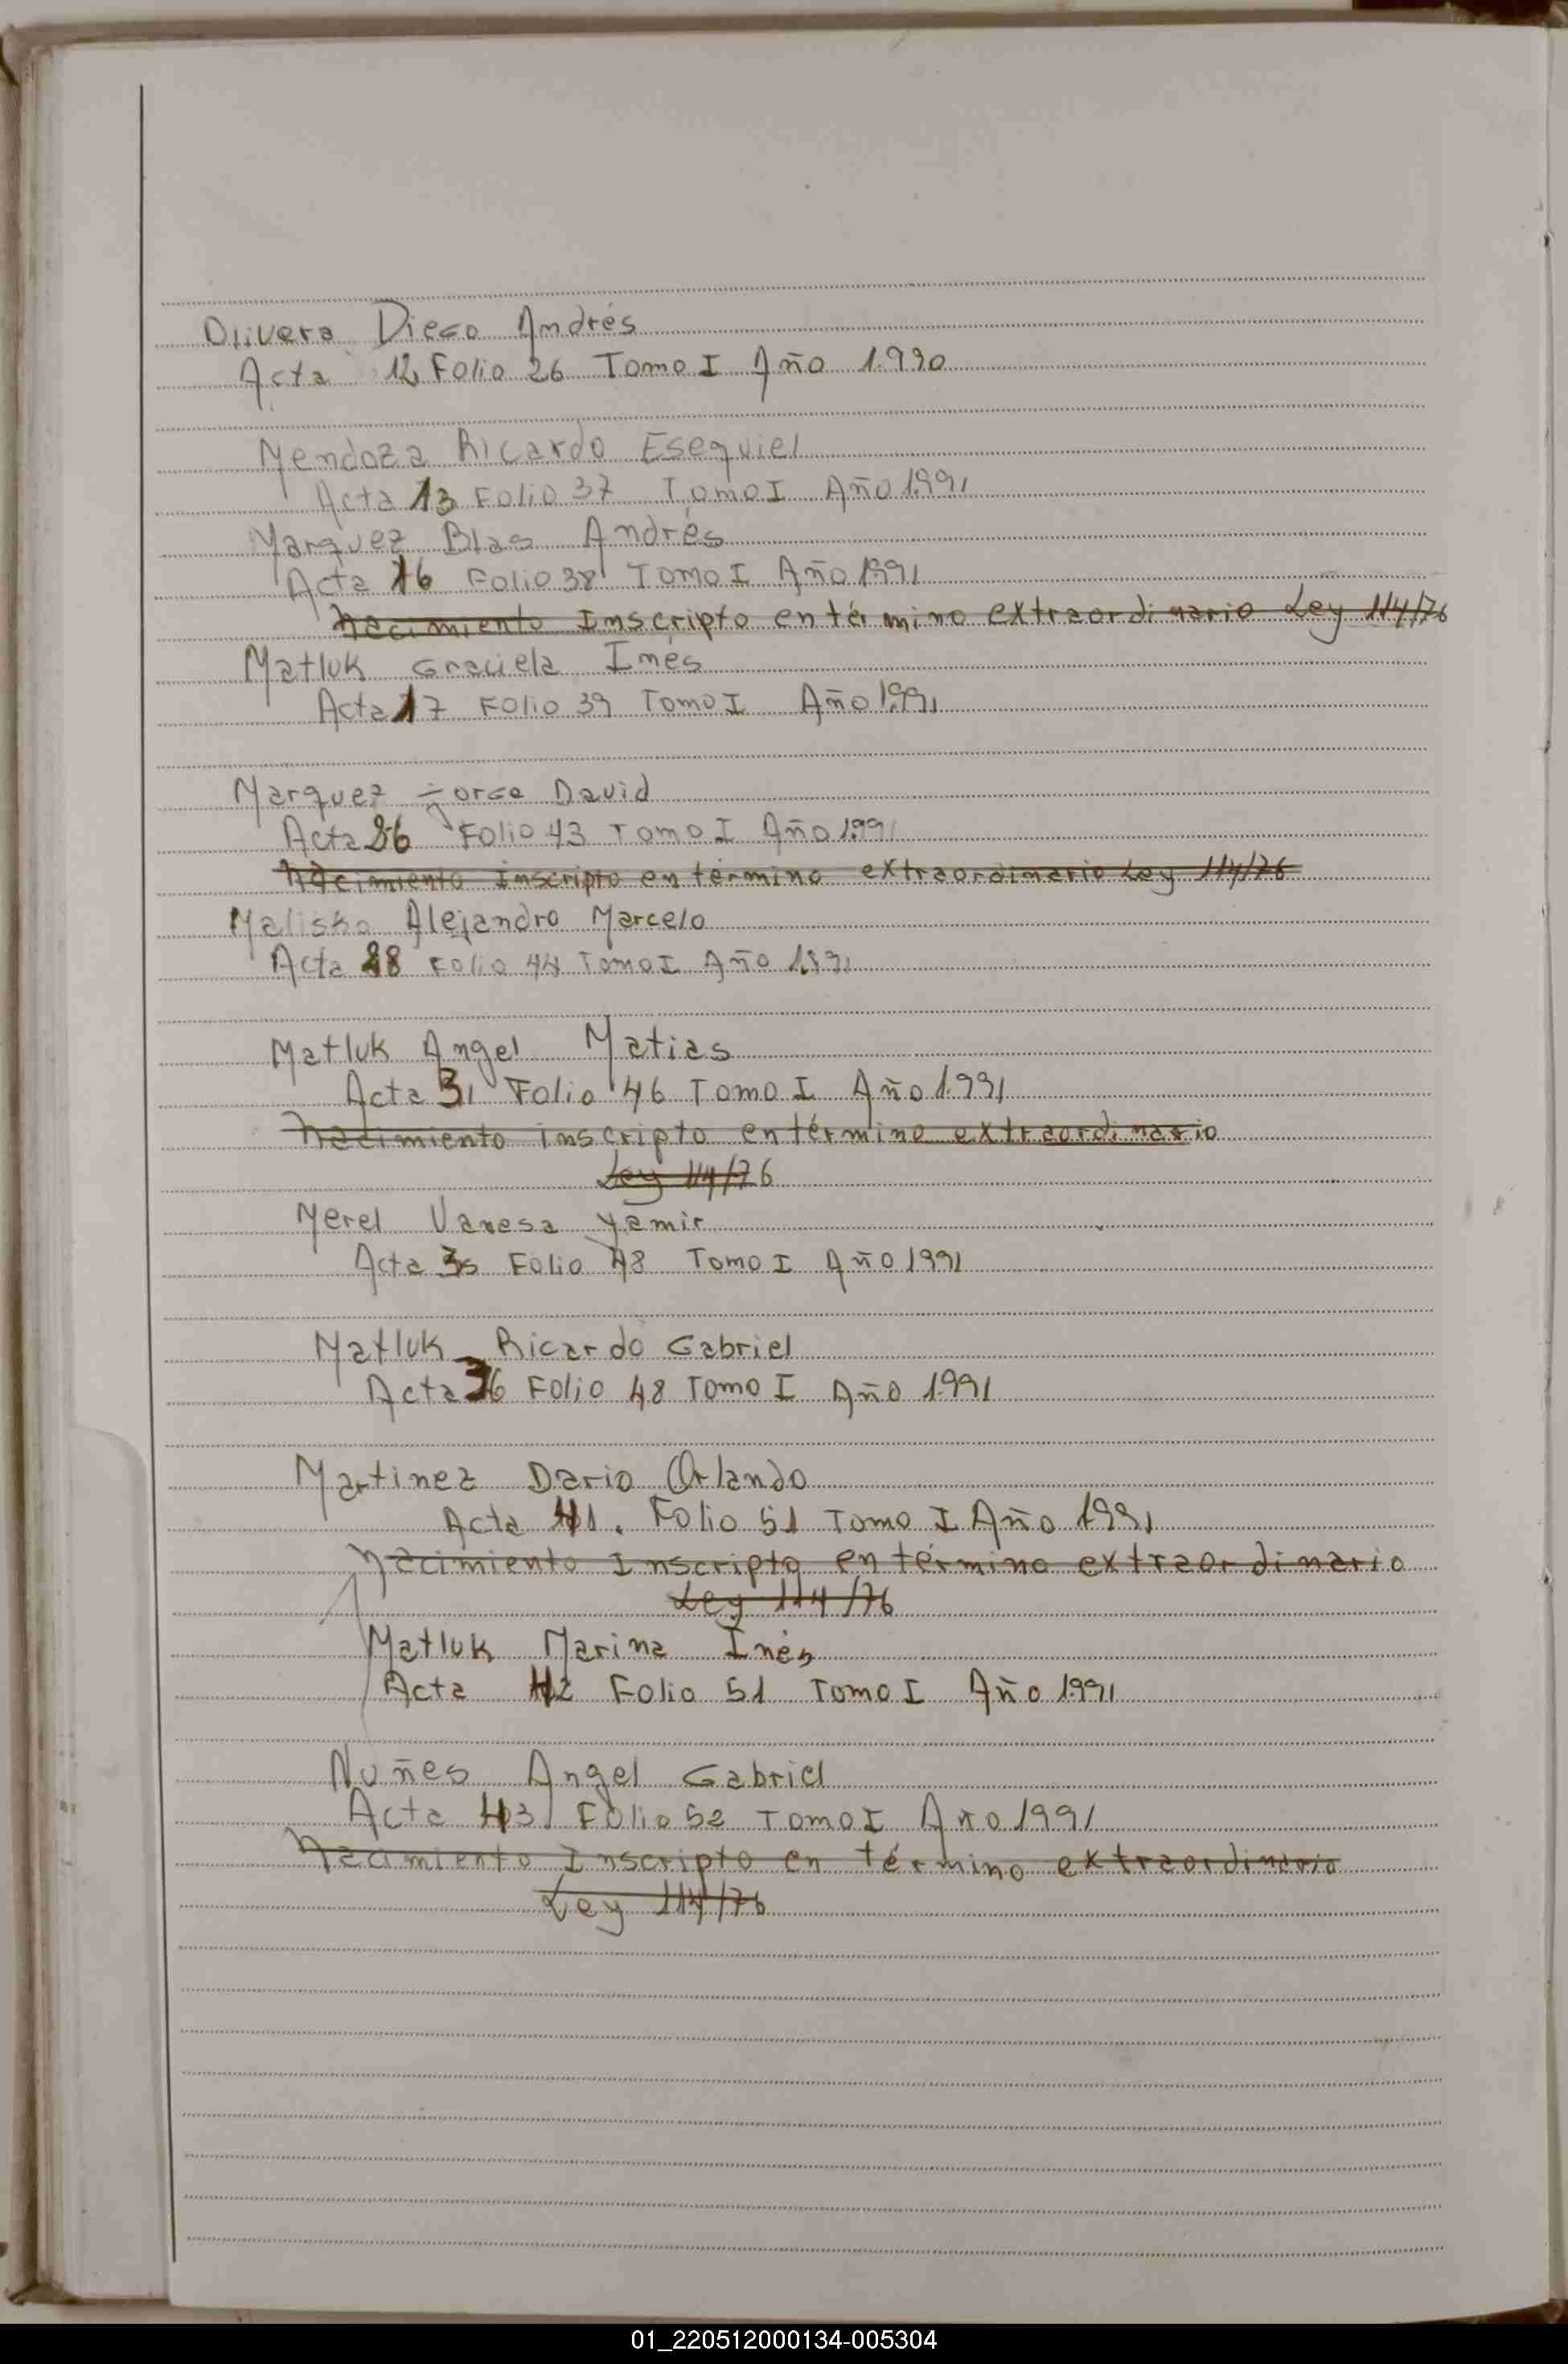 Olivera Diego Andrés
Acta 12 Folio 26 Tomo I Año 1.990
Mendoza Ricardo Esequiel
Acta 13 Folio 37 Tomo I Año 1.991
Marquez Blas Andrés
Acta 16 Folio 38 Tomo I Año 1991
Nacimiento Inscripto en término extraordinario Ley 114/76
Matluk Graciela Inés
Acta 17 Folio 39 Tomo I Año 1.991
Marquez Jorge David
Acta 26 Folio 43 Tomo I Año 1.991
Nacimiento Inscripto en término extraordinario Ley 114/76
Maliska Alejandro Marcelo
Acta 28 Folio 44 Tomo I Año 1.991
Matluk Angel Matias
Acta 31 Folio 46 Tomo I Año 1.991
Nacimiento inscripto en término extraordinario
Ley 114/76
Merel Vanesa Yamir
Acta 35 Folio 48 Tomo I Año 1991
Matluk Ricardo Gabriel
Acta 36 Folio 48 Tomo I Año 1.991
Martinez Dario Orlando
Acta 41. Folio 51 Tomo I Año 1991
Nacimiento Inscripto en término extraordinario
Ley 114/76
Matluk Marina Inés
Acta 42 Folio 51 Tomo I Año 1.991
Nuñes Angel Gabriel
Acta 43 Folio 52 Tomo I Año 1991
Nacimiento Inscripto en término extraordinario
Ley 114/76
01_220512000134-005304